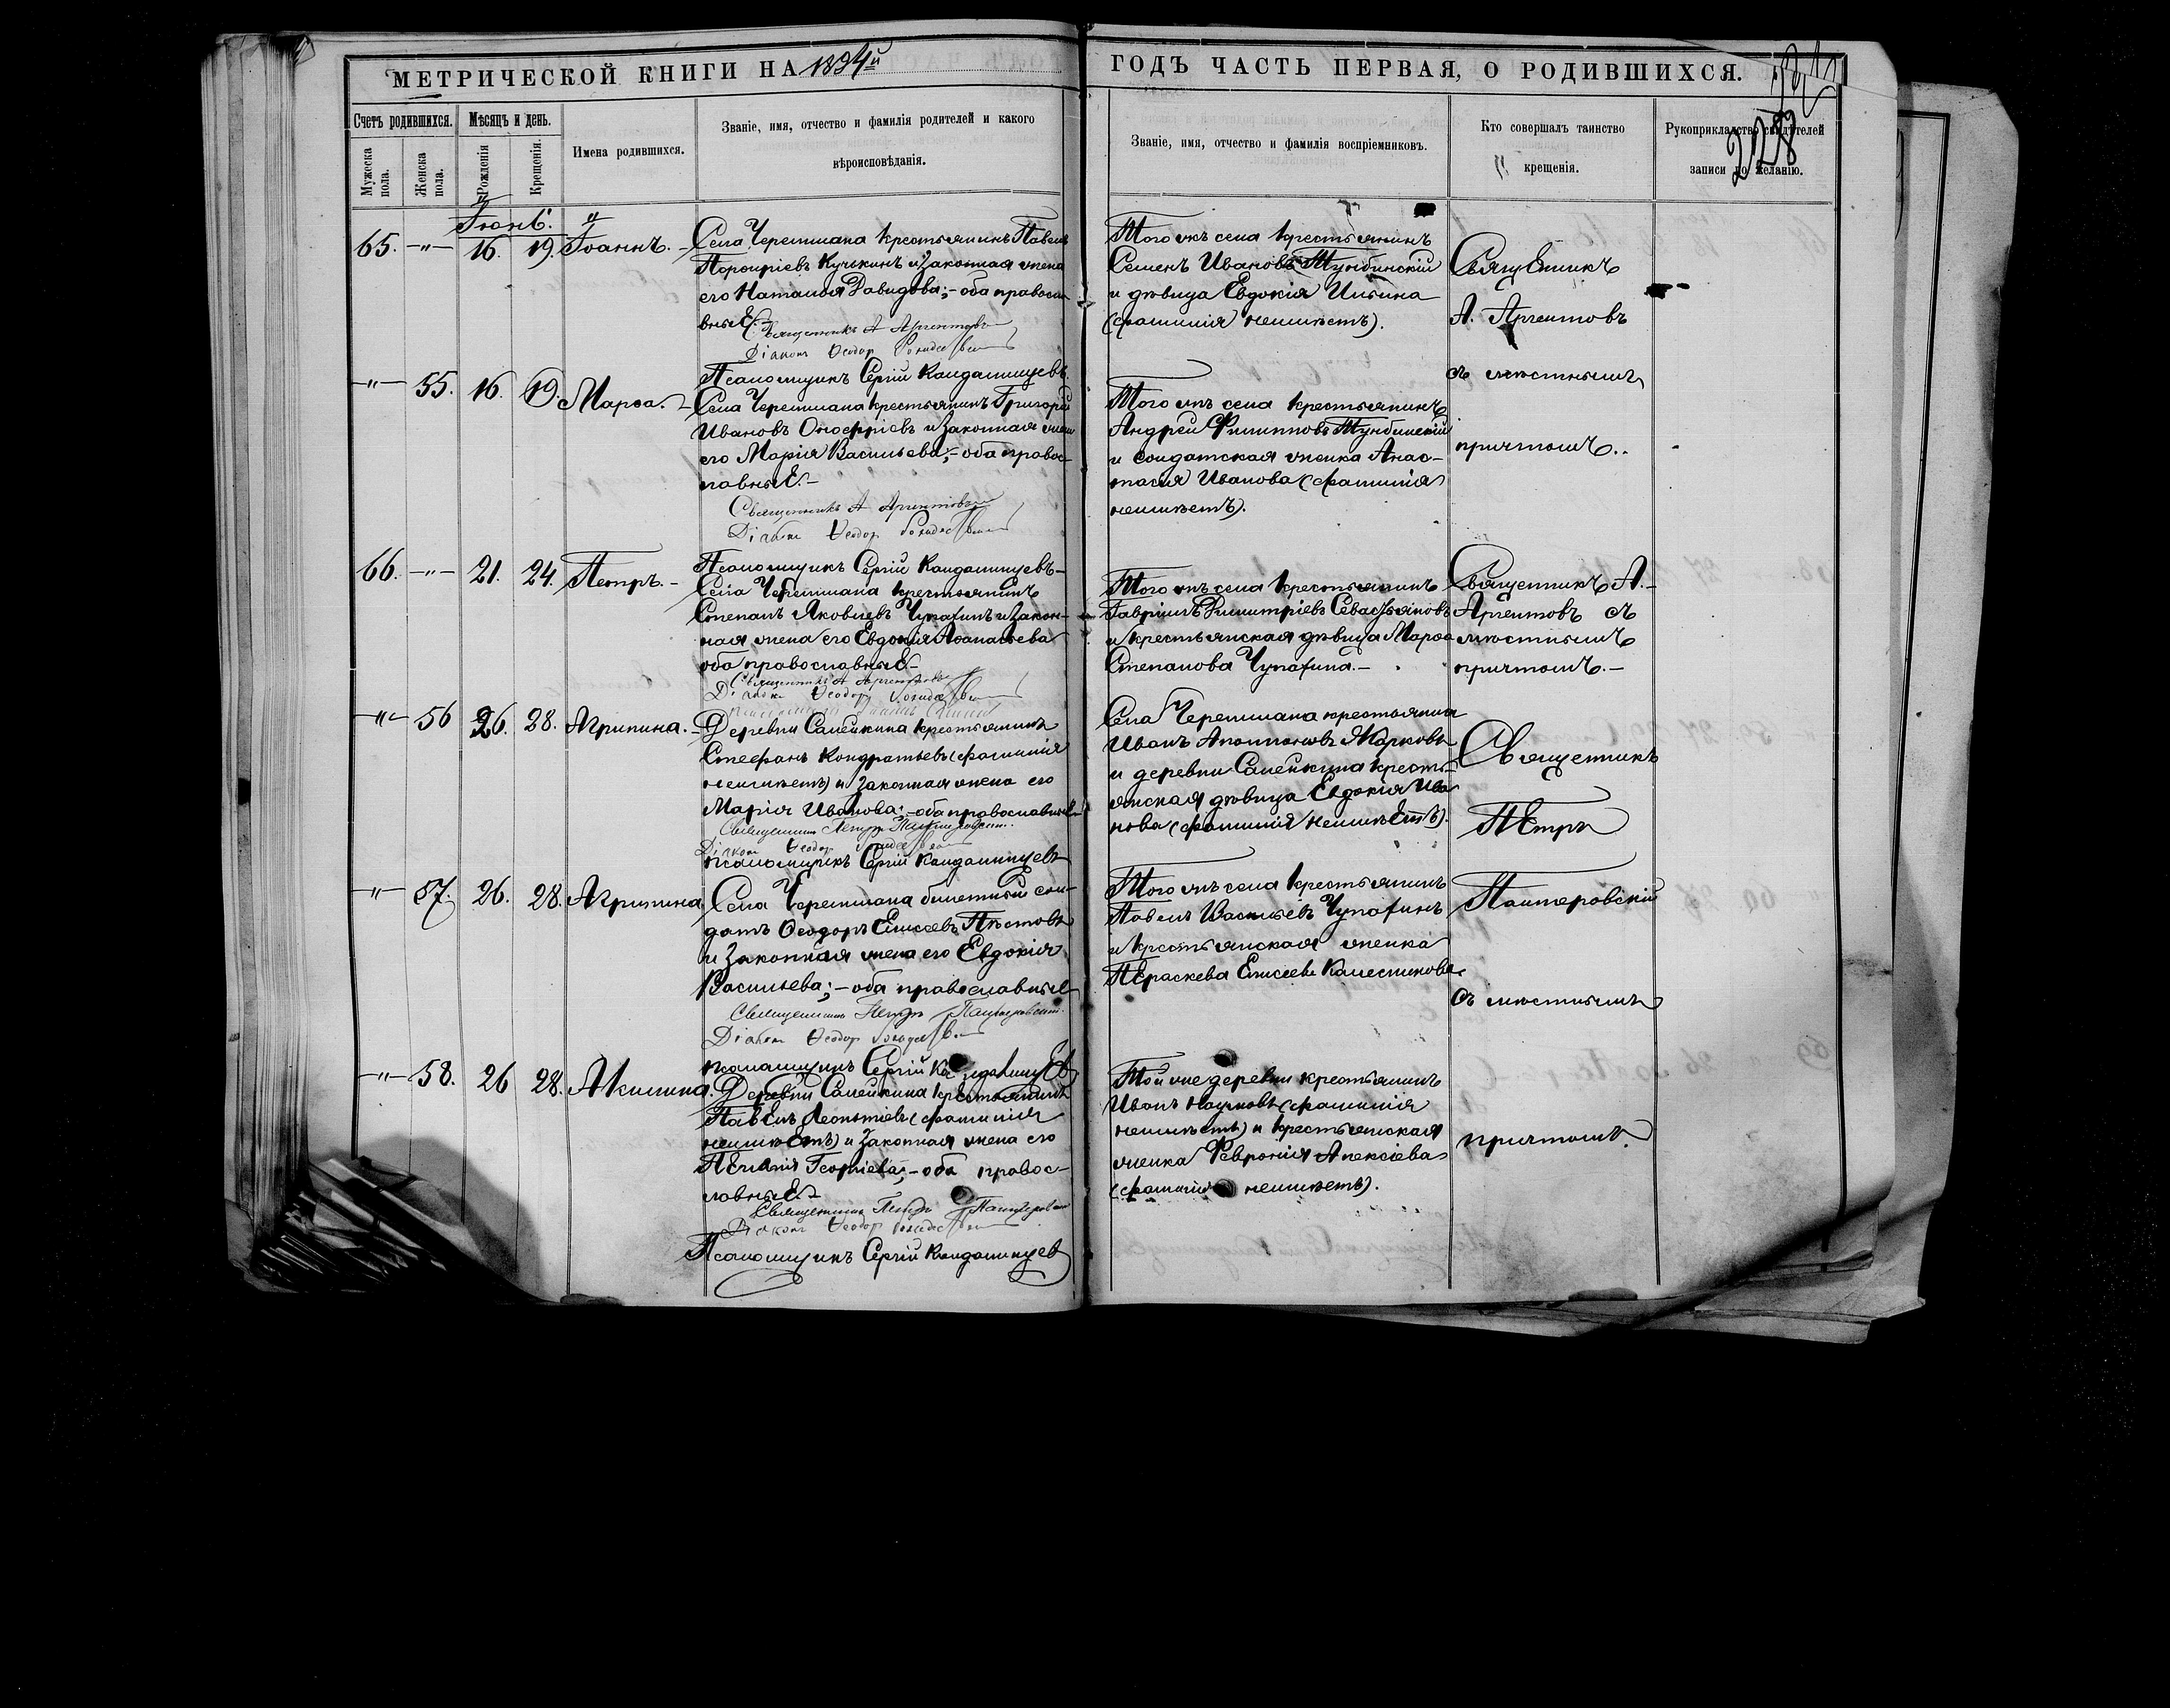 МЕТРИЧЕСКОЙ КНИГИ НА 1894й ГОДЪ ЧАСТЬ ПЕРВАЯ, О РОДИВШИХСЯ.
228
Счетъ родившихся.
Мужеска пола.
Женска пола.
Мѣсяцъ и день.
Рожденія
Крещенія.
Имена родившихся.
Званіе, имя, отчество и фамилія родителей и какого
вѣроисповѣданія.
Званіе, имя, отчество и фамилія воспріемниковъ.
Кто совершалъ таинство
крещенія.
Рукоприкладство свидѣтелей
записи по желанію.
Іюнь.
65. -"- 16. 19. Іоаннъ.
Села Черемшана крестьянинъ Павелъ
Порфиріевъ Кучькинъ и законная жена
его Наталія Давидова; - оба правосла
вные.
Священникъ А Аргентовъ
Діаконъ Ѳеодоръ
Псаломщикъ Сергій Кандалинцевъ
Того жъ села крестьянинъ
Семенъ Ивановъ Тумбинскій
и дѣвица Евдокія Ильина
(фамиліи неимѣетъ).
Священникъ
А. Аргентовъ
съ мѣстнымъ
причтомъ.
-"- 55. 16. 19. Марѳа.
Села Черемшана крестьянинъ Григорій
Ивановъ Оноффріевъ и законная жена
его Марія Васильева; - оба правос-
лавные. -
Священникъ А Аргентовъ
Діаконъ Ѳеодоръ
Псаломщикъ Сергій Кандалинцевъ
Того жъ села крестьянинъ
Андрей Филипповъ Тумбинскій
и солдатская женка Анас-
тасія Иванова (фамиліи
неимѣетъ).
66. -"- 21. 24. Петръ. -
Села Черемшана крестьянинъ
Степанъ Яковлевъ Чупахинъ и закон-
ная жена его Евдокія Аѳанасьева
оба православные. -
Священникъ А Аргентовъ
Діаконъ Ѳеодоръ
Того жъ села крестьянинъ
Гавріилъ Димитріевъ Севастьяновъ
и крестьянская дѣвица Марѳа
Степанова Чупахина. -
Священникъ А.
Аргентовъ съ
мѣстнымъ
причтомъ. -
-"- 56 26. 28. Агрипина. -
Деревни Салейкина крестьянинъ
Стефанъ Кондратьевъ (фамиліи
неимѣетъ) и законная жена его
Марія Иванова; - оба православные
Священникъ Петръ Пантеровскій
Діаконъ Ѳеодоръ
псаломщикъ Сергій Кандалинцевъ
Села Черемшана крестьянинъ
Иванъ Аполлоновъ Жарковъ
и деревни Салейкина кресть-
янская дѣвица Евдокія Ива
нова (фамиліи неимѣетъ).
Священникъ
Петръ
Пантеровскій
съ мѣстнымъ
причтомъ.
-"- 57. 26. 28. Агрипина.
Села Черемшана билетный сол-
датъ Ѳеодоръ Елисеевъ Пѣстовъ
и законная жена его Евдокія
Васильева; - оба православные
Священникъ Петръ Пантеровскій
Діаконъ Ѳеодоръ
псаломщикъ Сергій Кандалинцевъ
Того жъ села крестьянинъ
Павелъ Васильевъ Чупахинъ
и крестьянская женка
Параскева Елисеева Калесникова
-"- 58. 26 28. Акилина.
Деревни Салейкина крестьянинъ
Павелъ Леонтіевъ (фамиліи
неимѣетъ) и законная жена его
Пелагія Георгіева; - оба правос-
лавные
Священникъ Петръ Пантеровскій
Діаконъ Ѳеодоръ
Псаломщикъ Сергій Кандалинцев
Той же деревни крестьянинъ
Иванъ Наумовъ (фамиліи
неимѣетъ) и крестьянская
женка Февронія Алексіева
(фамиліи неимѣетъ).